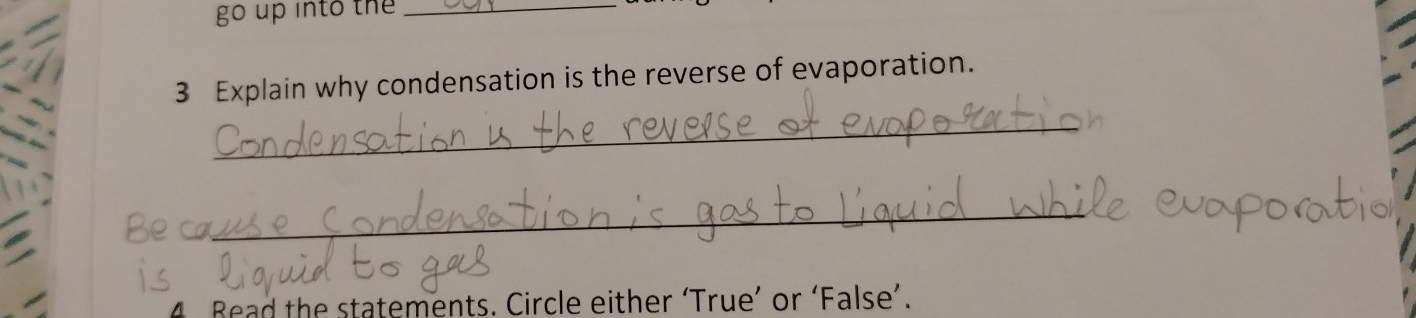 go up into the
3 Explain why condensation is the reverse of evaporation.
Condensation is the reverse of evaporation
Because Condensation is gas to liquid while evaporation
is liquid to gas
4 Read the statements. Circle either ‘True’ or ‘False’.